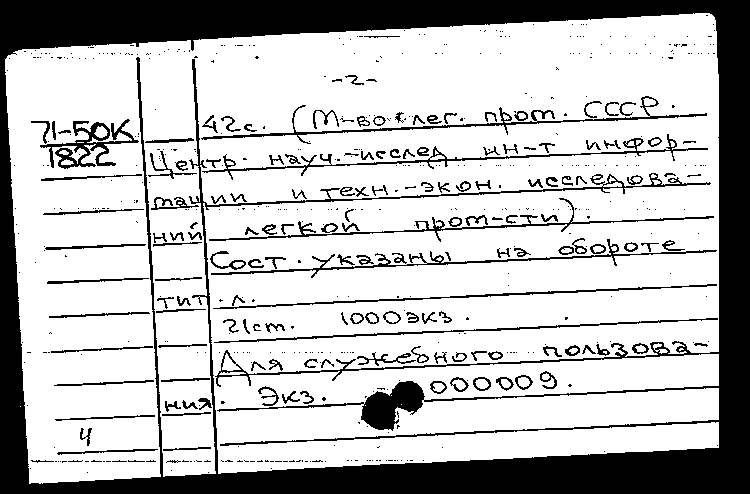 -2-
71-50К 42с. (М-во лег. пром. СССР.
1822 Центр. науч.-исслед. ин-т инфор-
мации и техн.-экон. исследова-
ний легкой пром-сти).
Сост. указаны на обороте
тит. л.
21см. 1000экз.
Для служебного пользова-
ния. Экз. 000009.
4